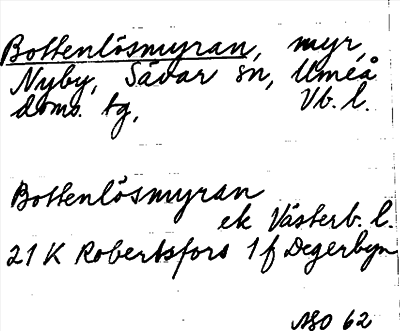 Bottenlösmyran, myr,
Nyby, Sävar sn, Umeå
doms. tg, Vb. l.
Bottenlösmyran
ek Västerb. l.
21 K Robertsfors 1 f Degerbyn
NSO 62